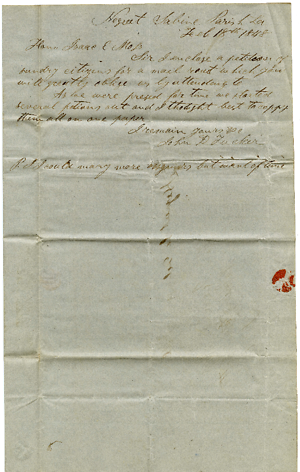 Negreet Sabine Parish La
Feb 18th 1848
Hono Isaac E Morse
Sir I enclose a petition of
sundry citizens for a mail rout which you
will greatly oblige us by attending to
As we were pressed for time we started
several petitions out and I thought best to
them all on one paper
I remain yours &c
John R Tucker
P.S. I could many more signers but want of time